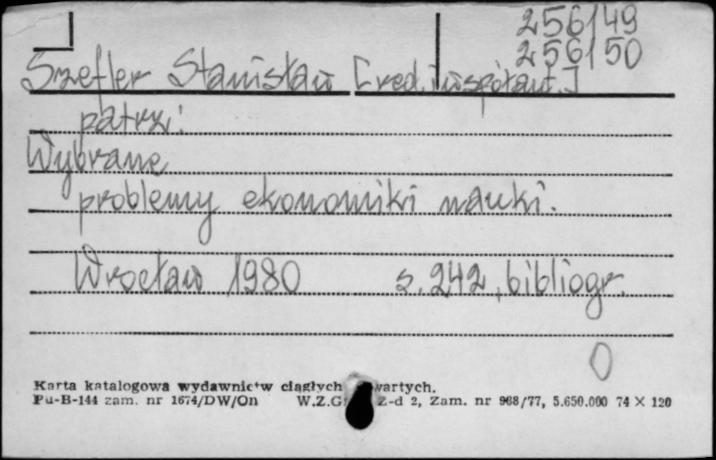 256149
256150
Szefler Stanisław [red. i współaut.]
patrz:
Wybrane
problemy ekonomiki nauki.
Wrocław 1980 s. 242, bibliogr.
0
Karta katalogowa wydawnictw ciągłych wartych.
Pu-B-144 zam. nr 1674/DW/On W.Z.G Z-d 2, Zam. nr 968/77, 5.650.000 74 × 120